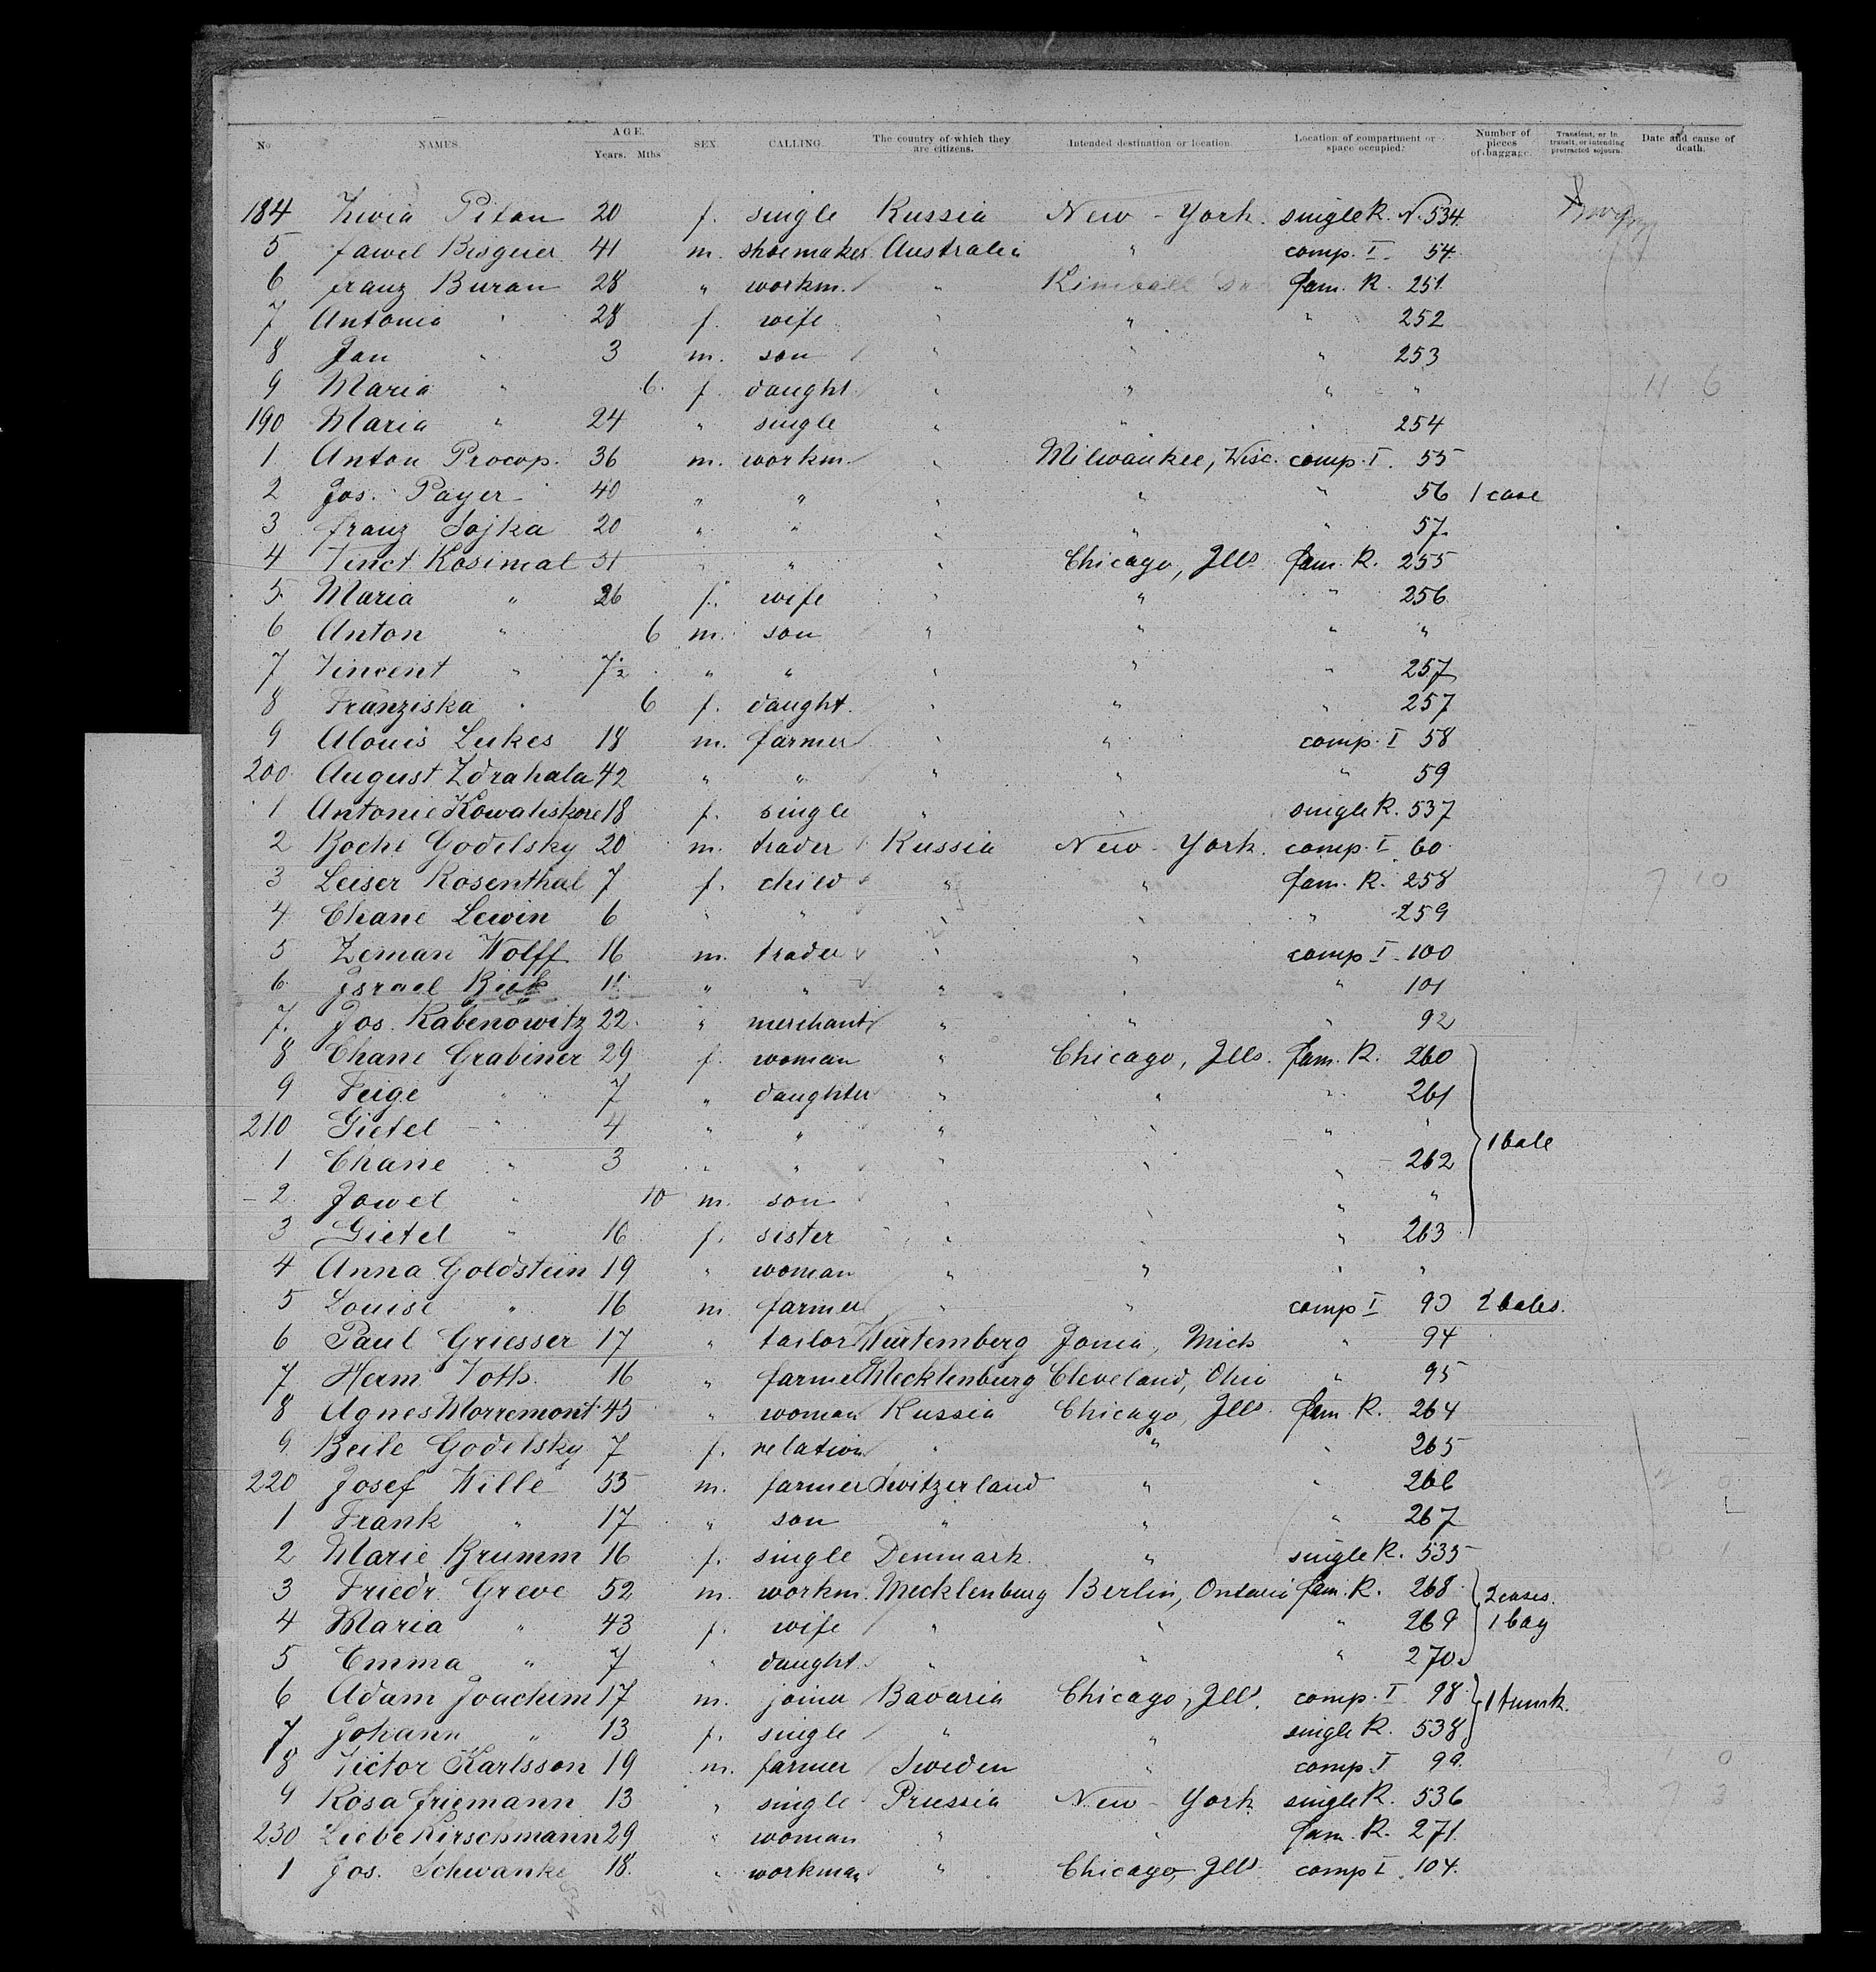 No NAMES. AGE. Years. Mths SEX CALLING. The country of which they are citizens. Intended destination or location. Location of compartment or space occupied. Number of pieces of baggage. Transient, or in transit, or intending protracted sojourn. Date and cause of death.
184 Zivia Pitan 20 f. single Russia New-York. single R. N. 534.
5 Jawel Bisguer 41 m. shoemaker Australia " comp. I. 54.
6 Franz Buran 28 " workm. " Kimball fam. R. 251
7 Antonia " 28 f. wife " " " 252
8 Jan " 3 m. son " " " 253
9 Maria " 6. f. daught. " " " " 11 6
190 Maria " 24 " single " " " 254
1 Anton Procop. 36 m. workm. " Milwaukee, Wisc. comp. I. 55
2 Jos. Payer 40 " " " " " 56 1 case
3 Franz Sojka 20 " " " " " 57.
4 Vinct. Kosimal 31 " " " Chicago, Ills fam. R. 255
5 Maria " 26 f. wife " " " 256
6 Anton " 6 m. son " " " "
7 Vincent " 7½ " " " " " 257
8 Franziska " 6 f. daught. " " " 257
9 Alouis Lukes 18 m. farmer " " comp. I 58
200 August Zdrahala 42 " " " " " 59
1 Antonie Kowaliskore 18 f. single " " single R. 537
2 Boche Godelsky 20 m. trader Russia New-York. comp. I 60
3 Leiser Rosenthal 7 f. child " " fam. R. 258 7 10
4 Chane Lewin 6 " " " " " 259
5 Zeman Wolff 16 m. trader " " comp I 100
6 Israel Buk 11 " " " " " 101
7. Jos. Rabenowitz 22 " merchant " " " 92
8 Chane Grabiner 29 f. woman " Chicago, Ills. fam. R. 260
9 Feige " 7 " daughter " " " 261
210 Gietel " 4 " " " " " " 1 bale
1 Chane " 3 " " " " " 262
2 Jowel " 10 m. son " " " "
3 Gietel " 16 f. sister " " " 263
4 Anna Goldstein 19 " woman " " " "
5 Louise " 16 m. farmer " " comp I 93 2 bales.
6 Paul Griesser 17 " tailor Würtemberg Jonia, Mich " 94
7 Herm Voth 16 " farmer Mecklenburg Cleveland, Ohio " 95
8 Agnes Morremont 45 " woman Russia Chicago, Ills. fam R. 264
9 Beile Godelsky 7 f. relation " " " 265
220 Josef Wille 55 m. farmer Switzerland " " 266
1 Frank " 17 " son " " " 267
2 Marie Brumm 16 f. single Denmark " single R. 535
3 Friedr. Greve 52 m. workm. Mecklenburg Berlin, Ontario fam. R. 268 2 cases.
4 Maria " 43 f. wife " " " 269 1 bag
5 Emma " 7 " daught. " " " 270
6 Adam Joachim 17 m. joiner Bavaria Chicago, Ills. comp. I 98 1 trunk.
7 Johann " 13 f. single " " single R. 538
8 Victor Karlsson 19 m. farmer Sweden " comp. I 99.
9 Rosa Friemann 13 " single Prussia New-York single R. 536 7 3
230 Liebe Kirschmann 29 " woman " " fam. R. 271.
1 Jos. Schwanke 18. " workman " Chicago, Ills. comp I 104.